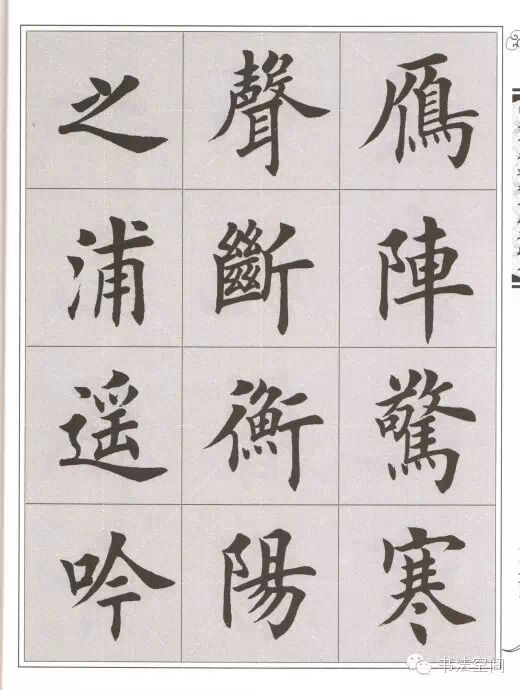 鴈陣驚寒
聲斷衡陽
之浦遥吟
书法空间